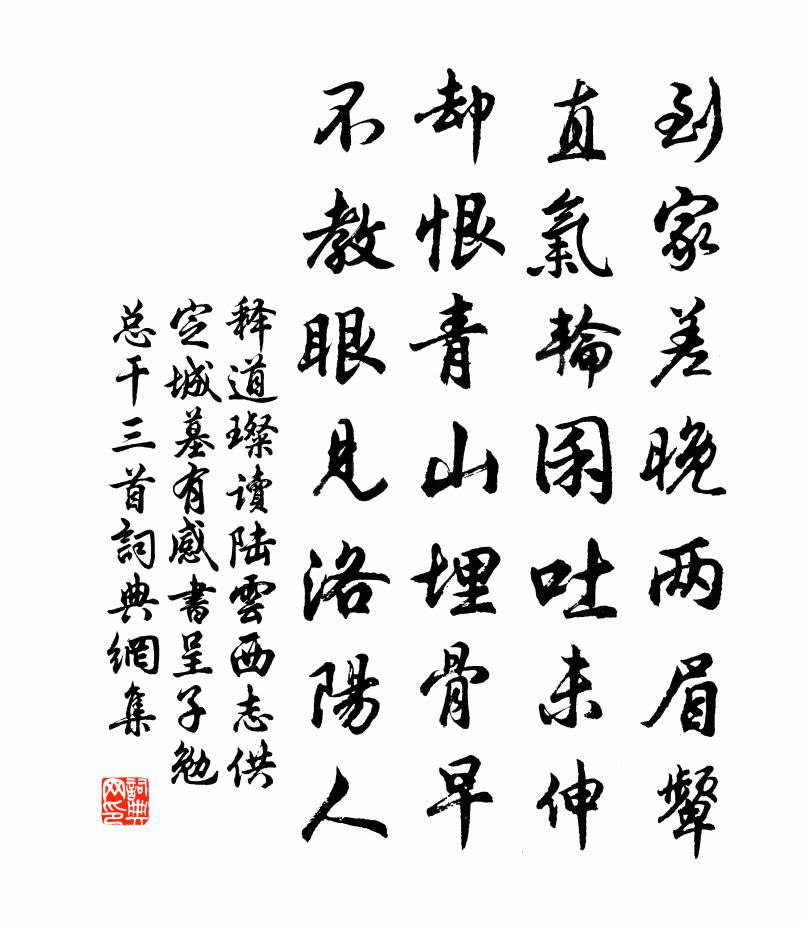 到家差晚两眉颦
直氣輪囷吐未伸
却恨青山埋骨早
不教眼見洛陽人
释道璨讀陆雲西志供
定城墓有感書呈子勉
总干三首詞典網集
詞典网印